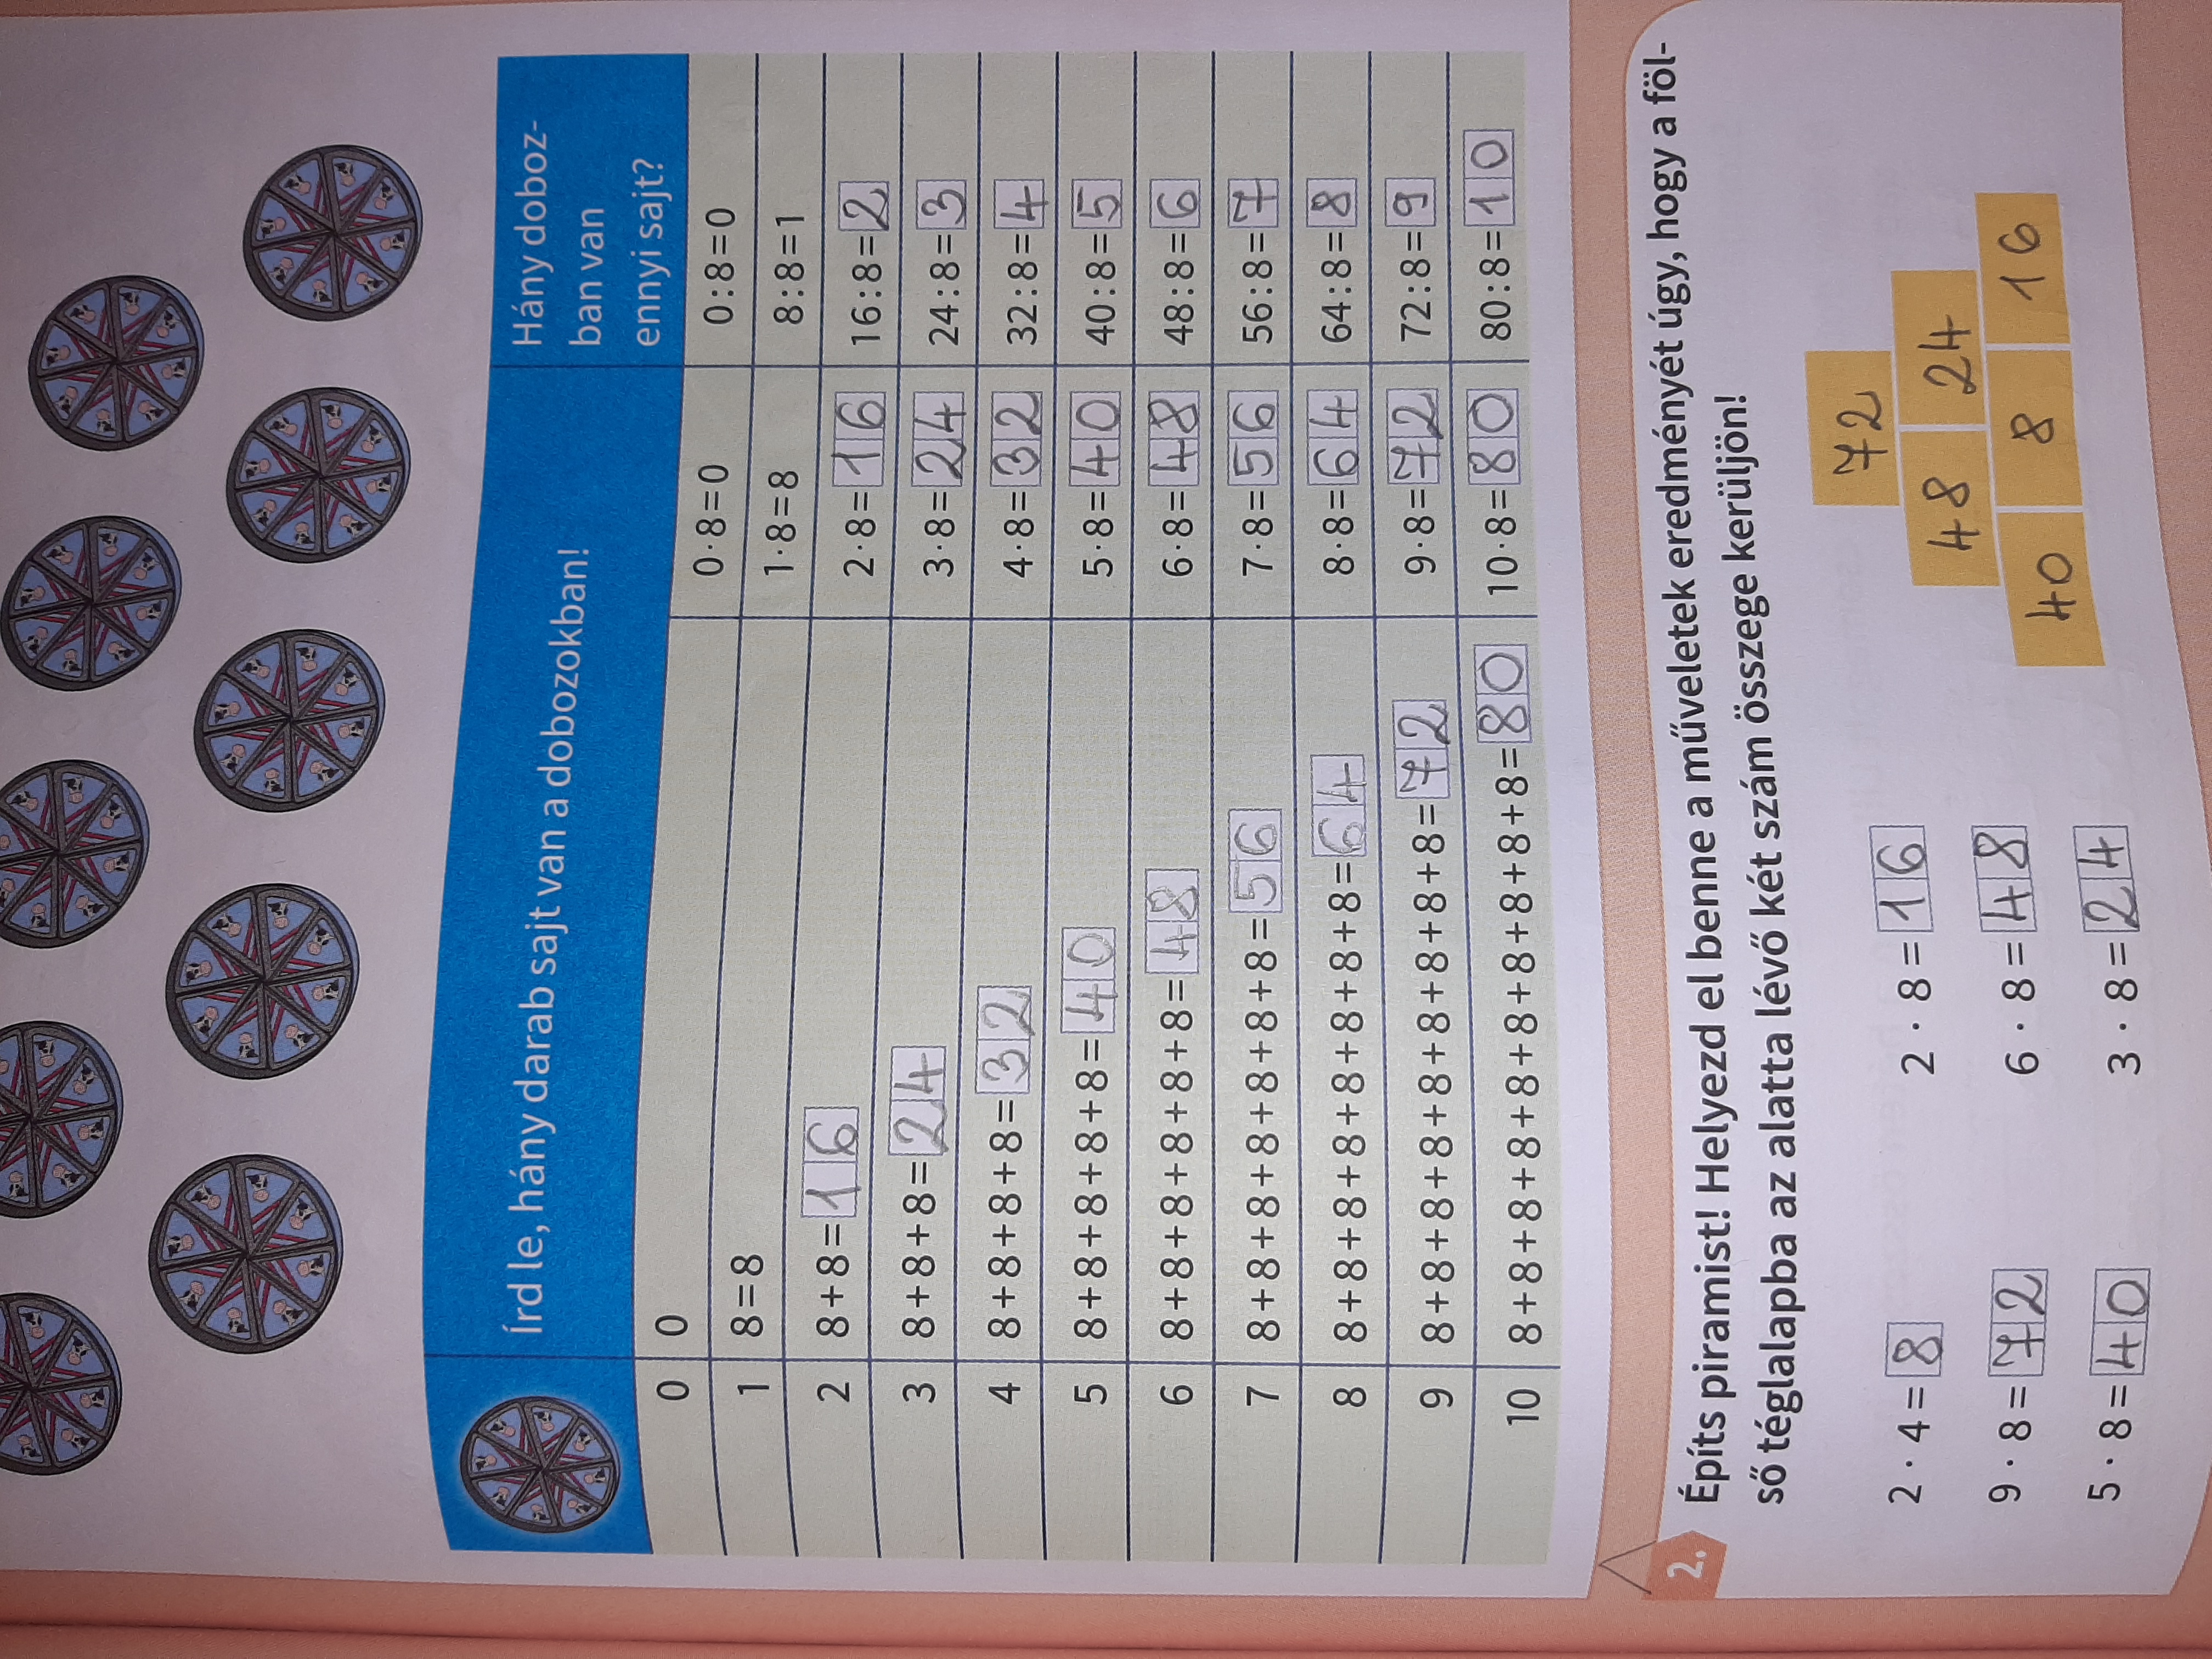 Írd le, hány darab sajt van a dobozokban!
Hány doboz-
ban van
ennyi sajt?
0 0 0·8=0 0:8=0
1 8=8 1·8=8 8:8=1
2 8+8=16 2·8=16 16:8=2
3 8+8+8=24 3·8=24 24:8=3
4 8+8+8+8=32 4·8=32 32:8=4
5 8+8+8+8+8=40 5·8=40 40:8=5
6 8+8+8+8+8+8=48 6·8=48 48:8=6
7 8+8+8+8+8+8+8=56 7·8=56 56:8=7
8 8+8+8+8+8+8+8+8=64 8·8=64 64:8=8
9 8+8+8+8+8+8+8+8+8=72 9·8=72 72:8=9
10 8+8+8+8+8+8+8+8+8+8=80 10·8=80 80:8=10
2. Építs piramist! Helyezd el benne a műveletek eredményét úgy, hogy a föl-
ső téglalapba az alatta lévő két szám összege kerüljön!
2 · 4 = 8 2 · 8 = 16
9 · 8 = 72 6 · 8 = 48
5 · 8 = 40 3 · 8 = 24
72
48 24
40 8 16